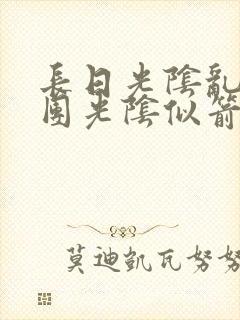 長日光陰亂
團光陰似箭
莫迪凱瓦努努